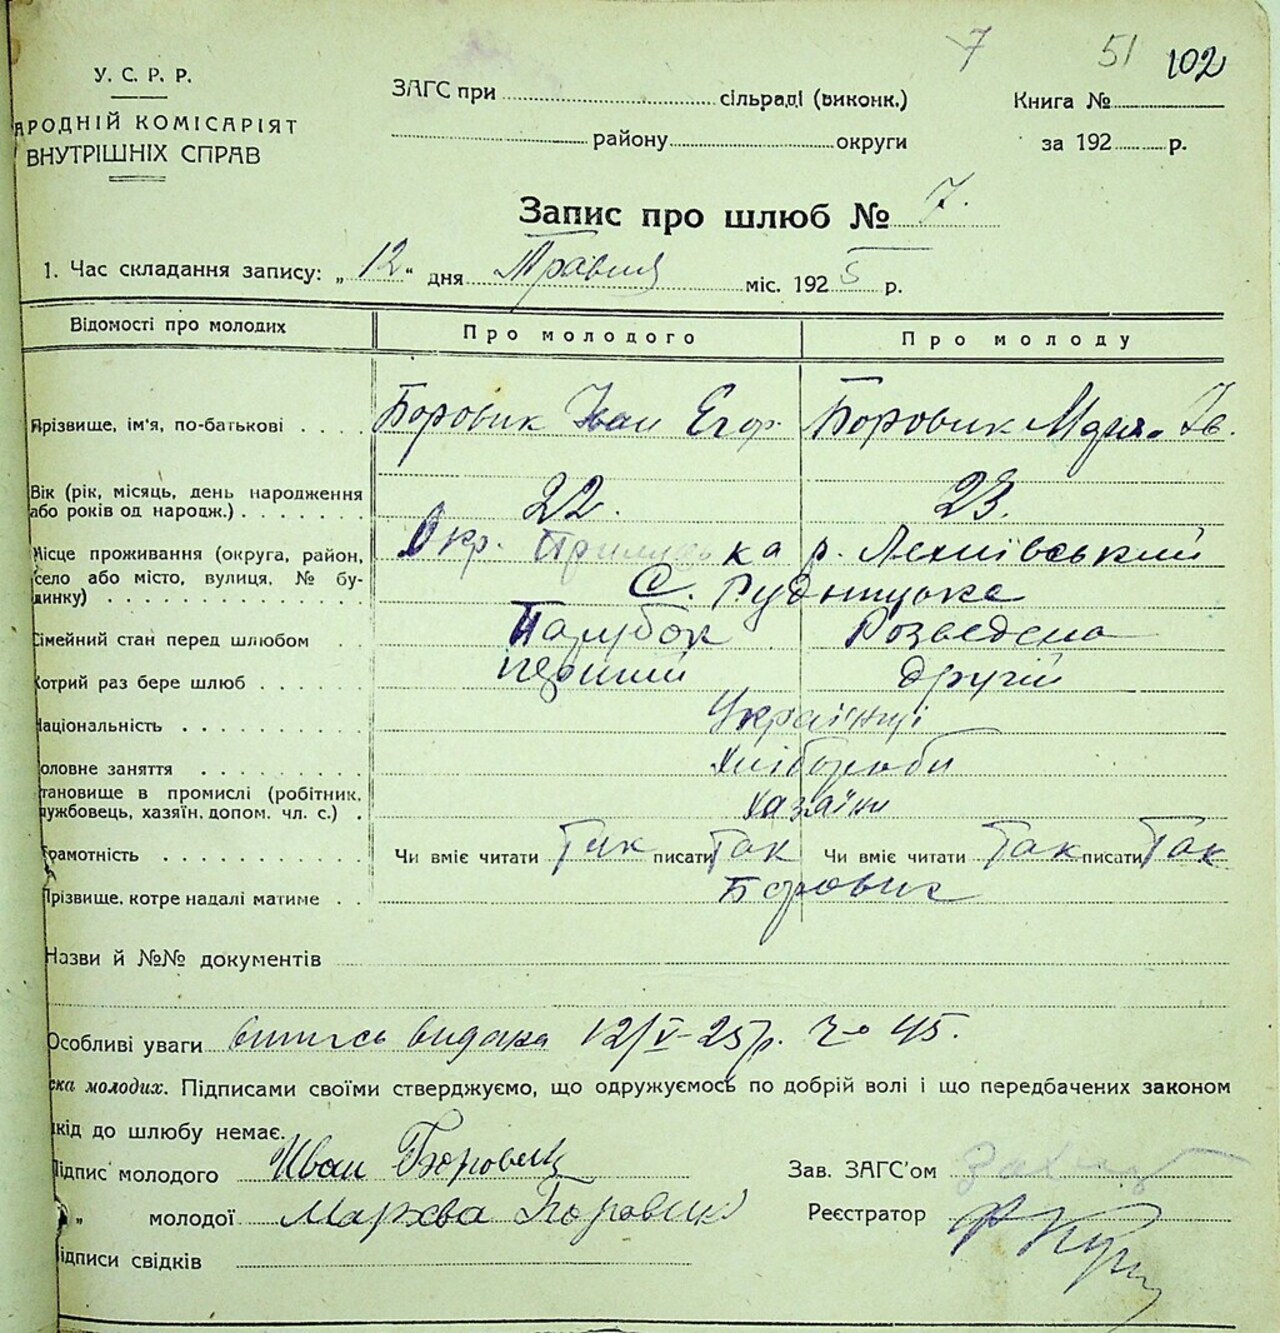 7 51 102
У. С. Р. Р.
АРОДНІЙ КОМІСАРІЯТ
ВНУТРІШНІХ СПРАВ
ЗАГС при сільраді (виконк.)
району округи
Книга №
за 192 р.
Запис про шлюб № 7.
1. Час складання запису: „12“ дня Травня міс. 1925 р.
Відомості про молодих Про молодого Про молоду
Прізвище, ім'я, по-батькові Боровик Іван Егор. Боровик Ів.
Вік (рік, місяць, день народження
або років од народж.) 22. 23.
Місце проживання (округа, район, Окр. Прилуцька р.
село або місто, вулиця, № бу- С.
динку)
Сімейний стан перед шлюбом Парубок Розведена
Котрий раз бере шлюб перший другий
Національність Українці
оловне заняття Хлібороби
тановище в промислі (робітник,
ужбовець, хазяїн, допом. чл. с.) Хазяїни
Грамотність Чи вміє читати Так писати Так Чи вміє читати Так писати Так
Прізвище, котре надалі матиме Боровик
Назви й №№ документів
Особливі уваги випись видана 12/V-25 р. 45.
ска молодих. Підписами своїми стверджуємо, що одружуємось по добрій волі і що передбачених законом
кід до шлюбу немає.
Підпис молодого Иван Боровик Зав. ЗАГС'ом
„ молодої Боровик Реєстратор
Підписи свідків